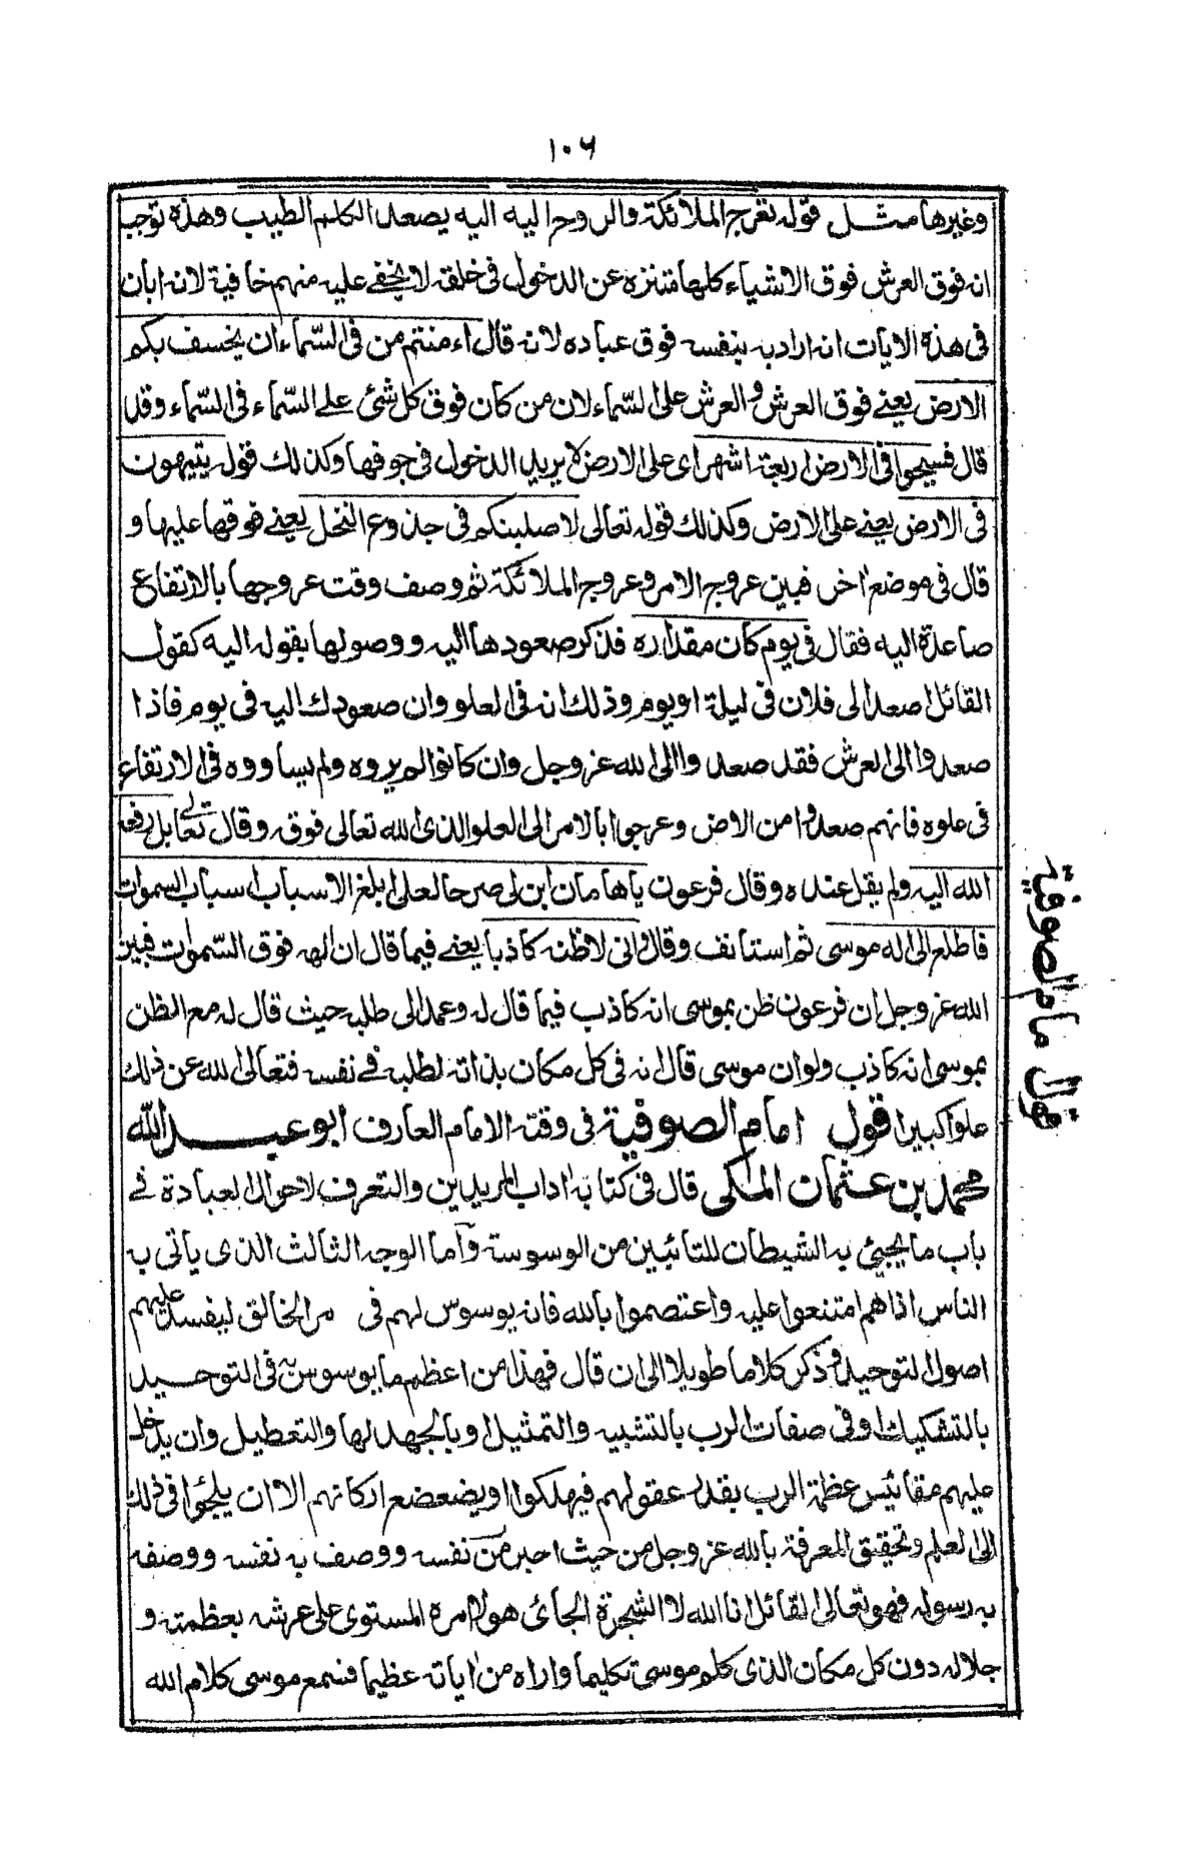 ١٠٦
وغيرها مثل قوله تعرج الملائكة والروح اليه اليه يصعد الكلم الطيب وهذه توجب
انه فوق العرش فوق الاشياء كلها متنزه عن الدخول فى خلقه لا يخفے عليه منهم خافية لانه ابان
فى هذه الايات انه اراد به بنفسه فوق عباده لانه قال ءامنتم من فى السّماء ان يخسف بكم
الارض يعنے فوق العرش والعرش على السّماء لان من كان فوق كل شئ علے السّماء فى السّماء وقد
قال فسيحوا فى الارض اربعة اشهر اى على الارض لا يريد الدخول فى جوفها وكذلك قوله يتيهون
فى الارض يعنے على الارض وكذلك قوله تعالى لاصلبنكم فى جذوع النخل يعنے فوقها عليها و
قال فى موضع اخر فبين عروج الامر وعروج الملائكة ثم وصف وقت عروجها بالارتفاع
صاعدة اليه فقال فى يوم كان مقداره فذكر صعودها اليه ووصولها بقوله اليه كقول
القائل اصعد الى فلان فى ليلة او يوم وذلك انه فى العلو وان صعودك اليه فى يوم فاذا
صعدوا الى العرش فقد صعدوا الى الله عز وجل وان كانوا لم يروه ولم يساووه فى الارتفاع
فى علوه فانهم صعدوا من الارض وعرجوا بالامر الى العلو الذى الله تعالى فوقه وقال تعالے بل رفعه
الله اليه ولم يقل عنده وقال فرعون ياهامان ابن لى صرحا لعلى ابلغ الاسباب اسباب السموات
فاطلع الى اله موسى ثم استانف وقال وانى لاظنه كاذبا يعنے فيما قال ان الهه فوق السّموات فبين
الله عز وجل ان فرعون ظن بموسى انه كاذب فيما قال له وعمد الى طلبه حيث قال له مع الظن
بموسى انه كاذب ولو ان موسى قال انه فى كل مكان بذاته لطلبه فے نفسه فتعالى الله عن ذلك
علوا كبيرا قول امام الصوفية فى وقته الامام العارف ابو عبد الله
محمد بن عثمان المكى قال فى كتابه اداب المريدين والتعرف لاحوال العبادة فے
باب ما يجيئ به الشيطان للتائبين من الوسوسة واما الوجه الثالث الذى ياتى به
الناس اذا هم امتنعوا عليه واعتصموا بالله فانه يوسوس لهم فى مر الخالق ليفسد عليهم
اصول التوحيد وذكر كلاما طويلا الى ان قال فهذا من اعظم ما يوسوس به فى التوحيد
بالتشكيك او فى صفات الرب بالتشبيه والتمثيل او بالجهد لها والتعطيل وان يدخل
عليهم مقائيس عظمة الرب بقدر عقولهم فيهلكوا او يضعضع اركانهم الا ان يلجئوا فى ذلك
الى العلم وتحقيق المعرفة بالله عز وجل من حيث اخبر من نفسه ووصف به نفسه ووصفه
به رسوله فهو تعالى القائل انا الله لا الشجرة الجائ هو لا امره المستوى على عرشه بعظمته و
جلاله دون كل مكان الذى كلم موسى تكليما واراه من اياته عظيما فسمع موسى كلام الله
قول امام الصوفية